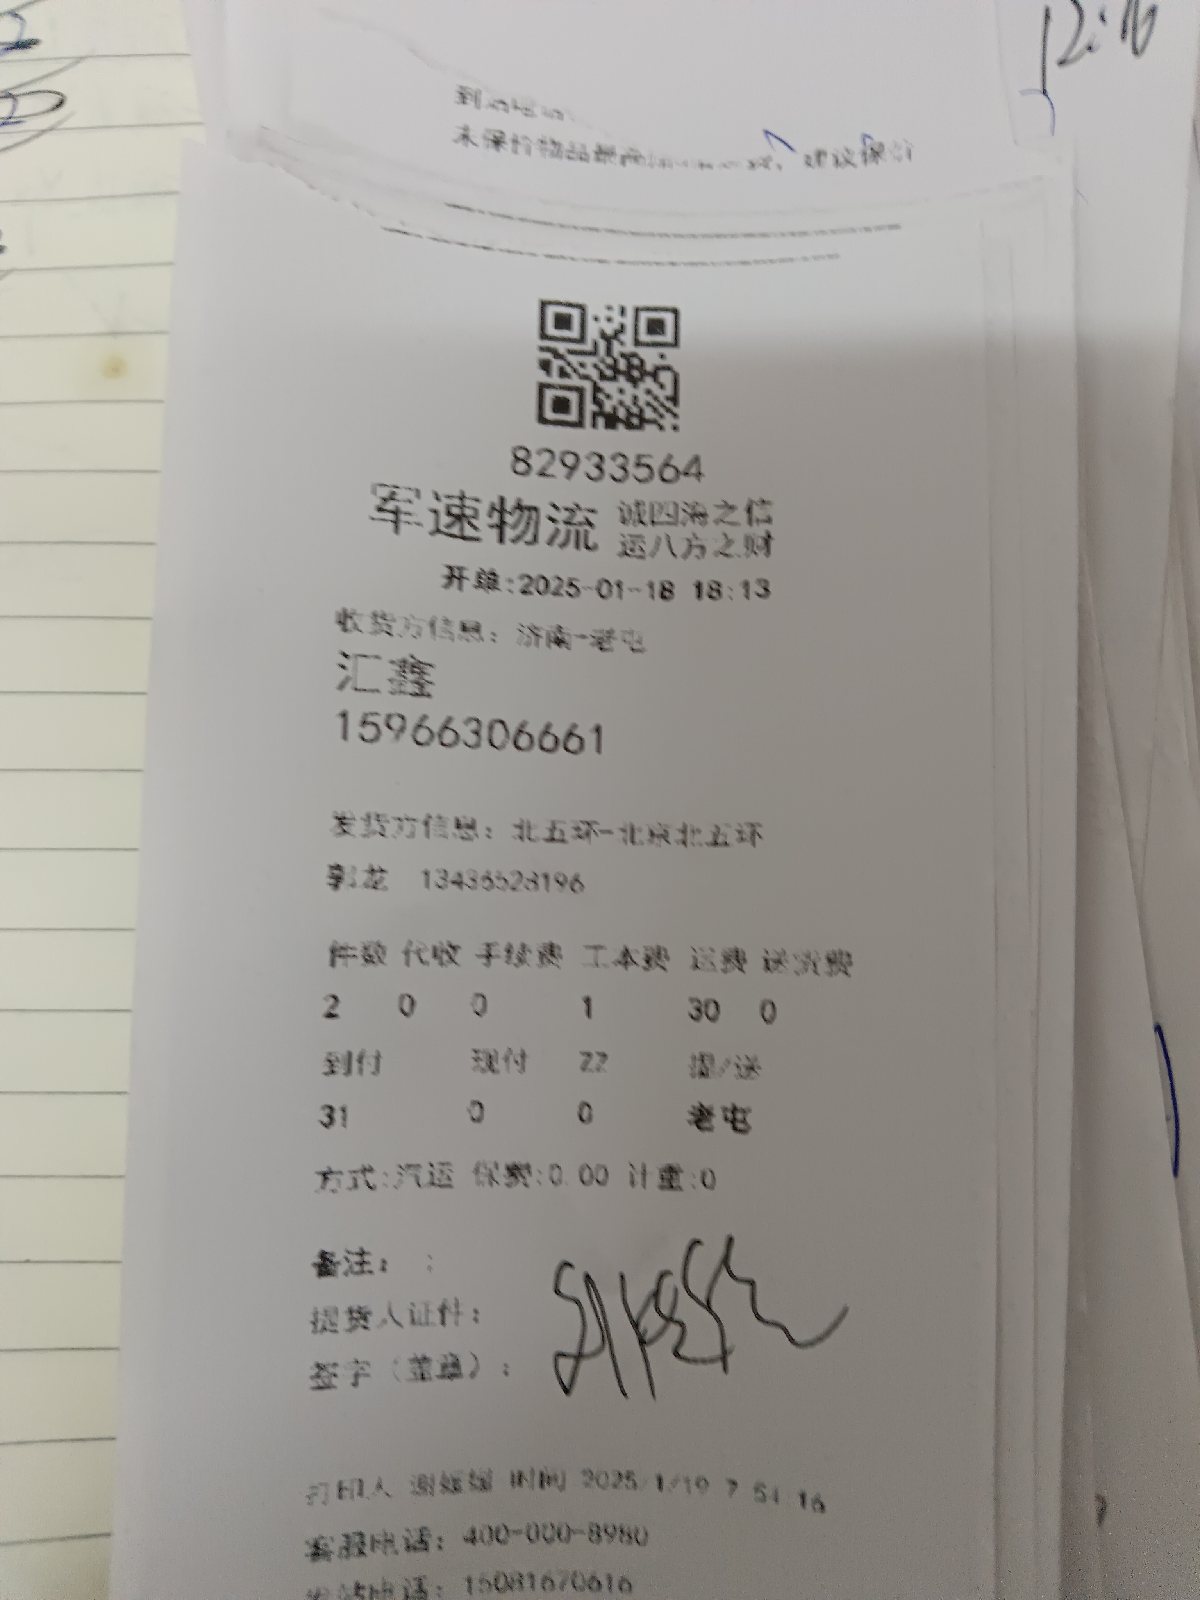 12:16
未保价物品最高
建议保价
82933564
军速物流 诚四海之信
运八方之财
开单:2025-01-18 18:13
收货方信息：济南-老屯
汇鑫
15966306661
发货方信息：北五环-北京北五环
郭龙 13436528196
件数 代收 手续费 工本费 运费 送货费
2 0 0 1 30 0
到付 现付 ZZ 提/送
31 0 0 老屯
方式:汽运 保费:0.00 计重:0
备注： :
提货人证件：
签字（盖章）：
打印人 谢媛媛 时间 2025/1/19 7:51:16
客服电话：400-000-8980
发站电话：15081670616